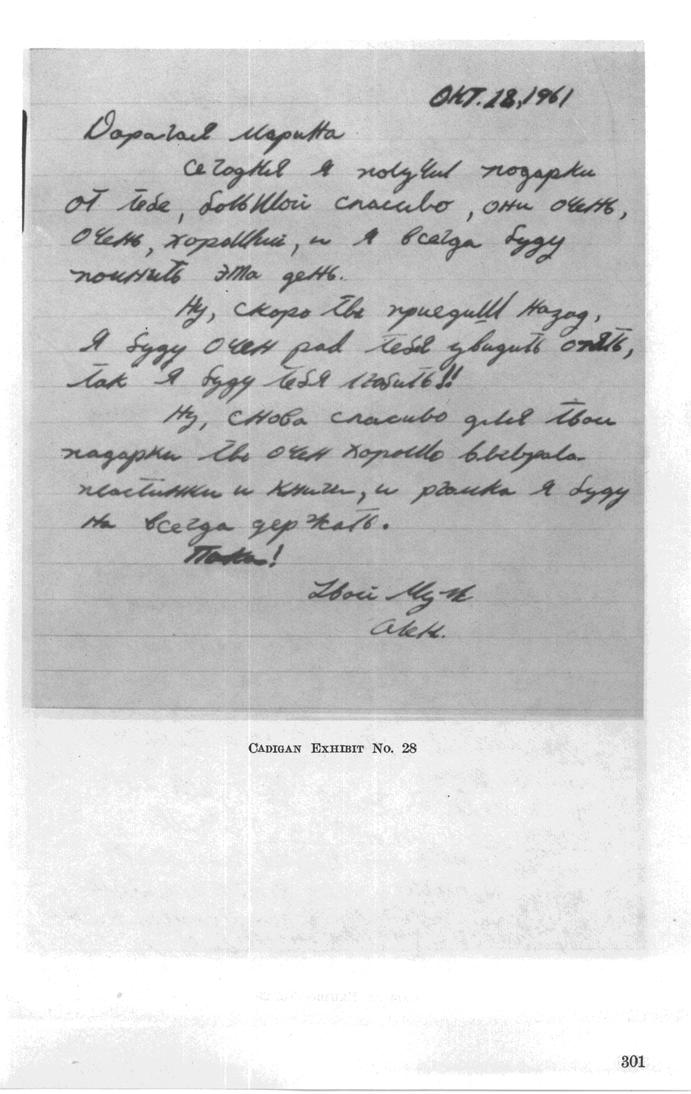 ОКТ. 18, 1961
Дарагая Марина
Сегодня я получил подарки
от тебе, большой спасиво, они очень,
очень, хороший, и я всегда буду
помнить эта день.
Ну, скоро ты приедиш назад,
я буду очен рад тебя увидить опять,
так я буду тебя любить!!
Ну, снова спасиво для твои
падарки ты очен хорошо выбрала
пластинки и книги, и рамка я буду
на всегда держать.
Пака!
Твой Муж
Алек.
CADIGAN EXHIBIT No. 28
301